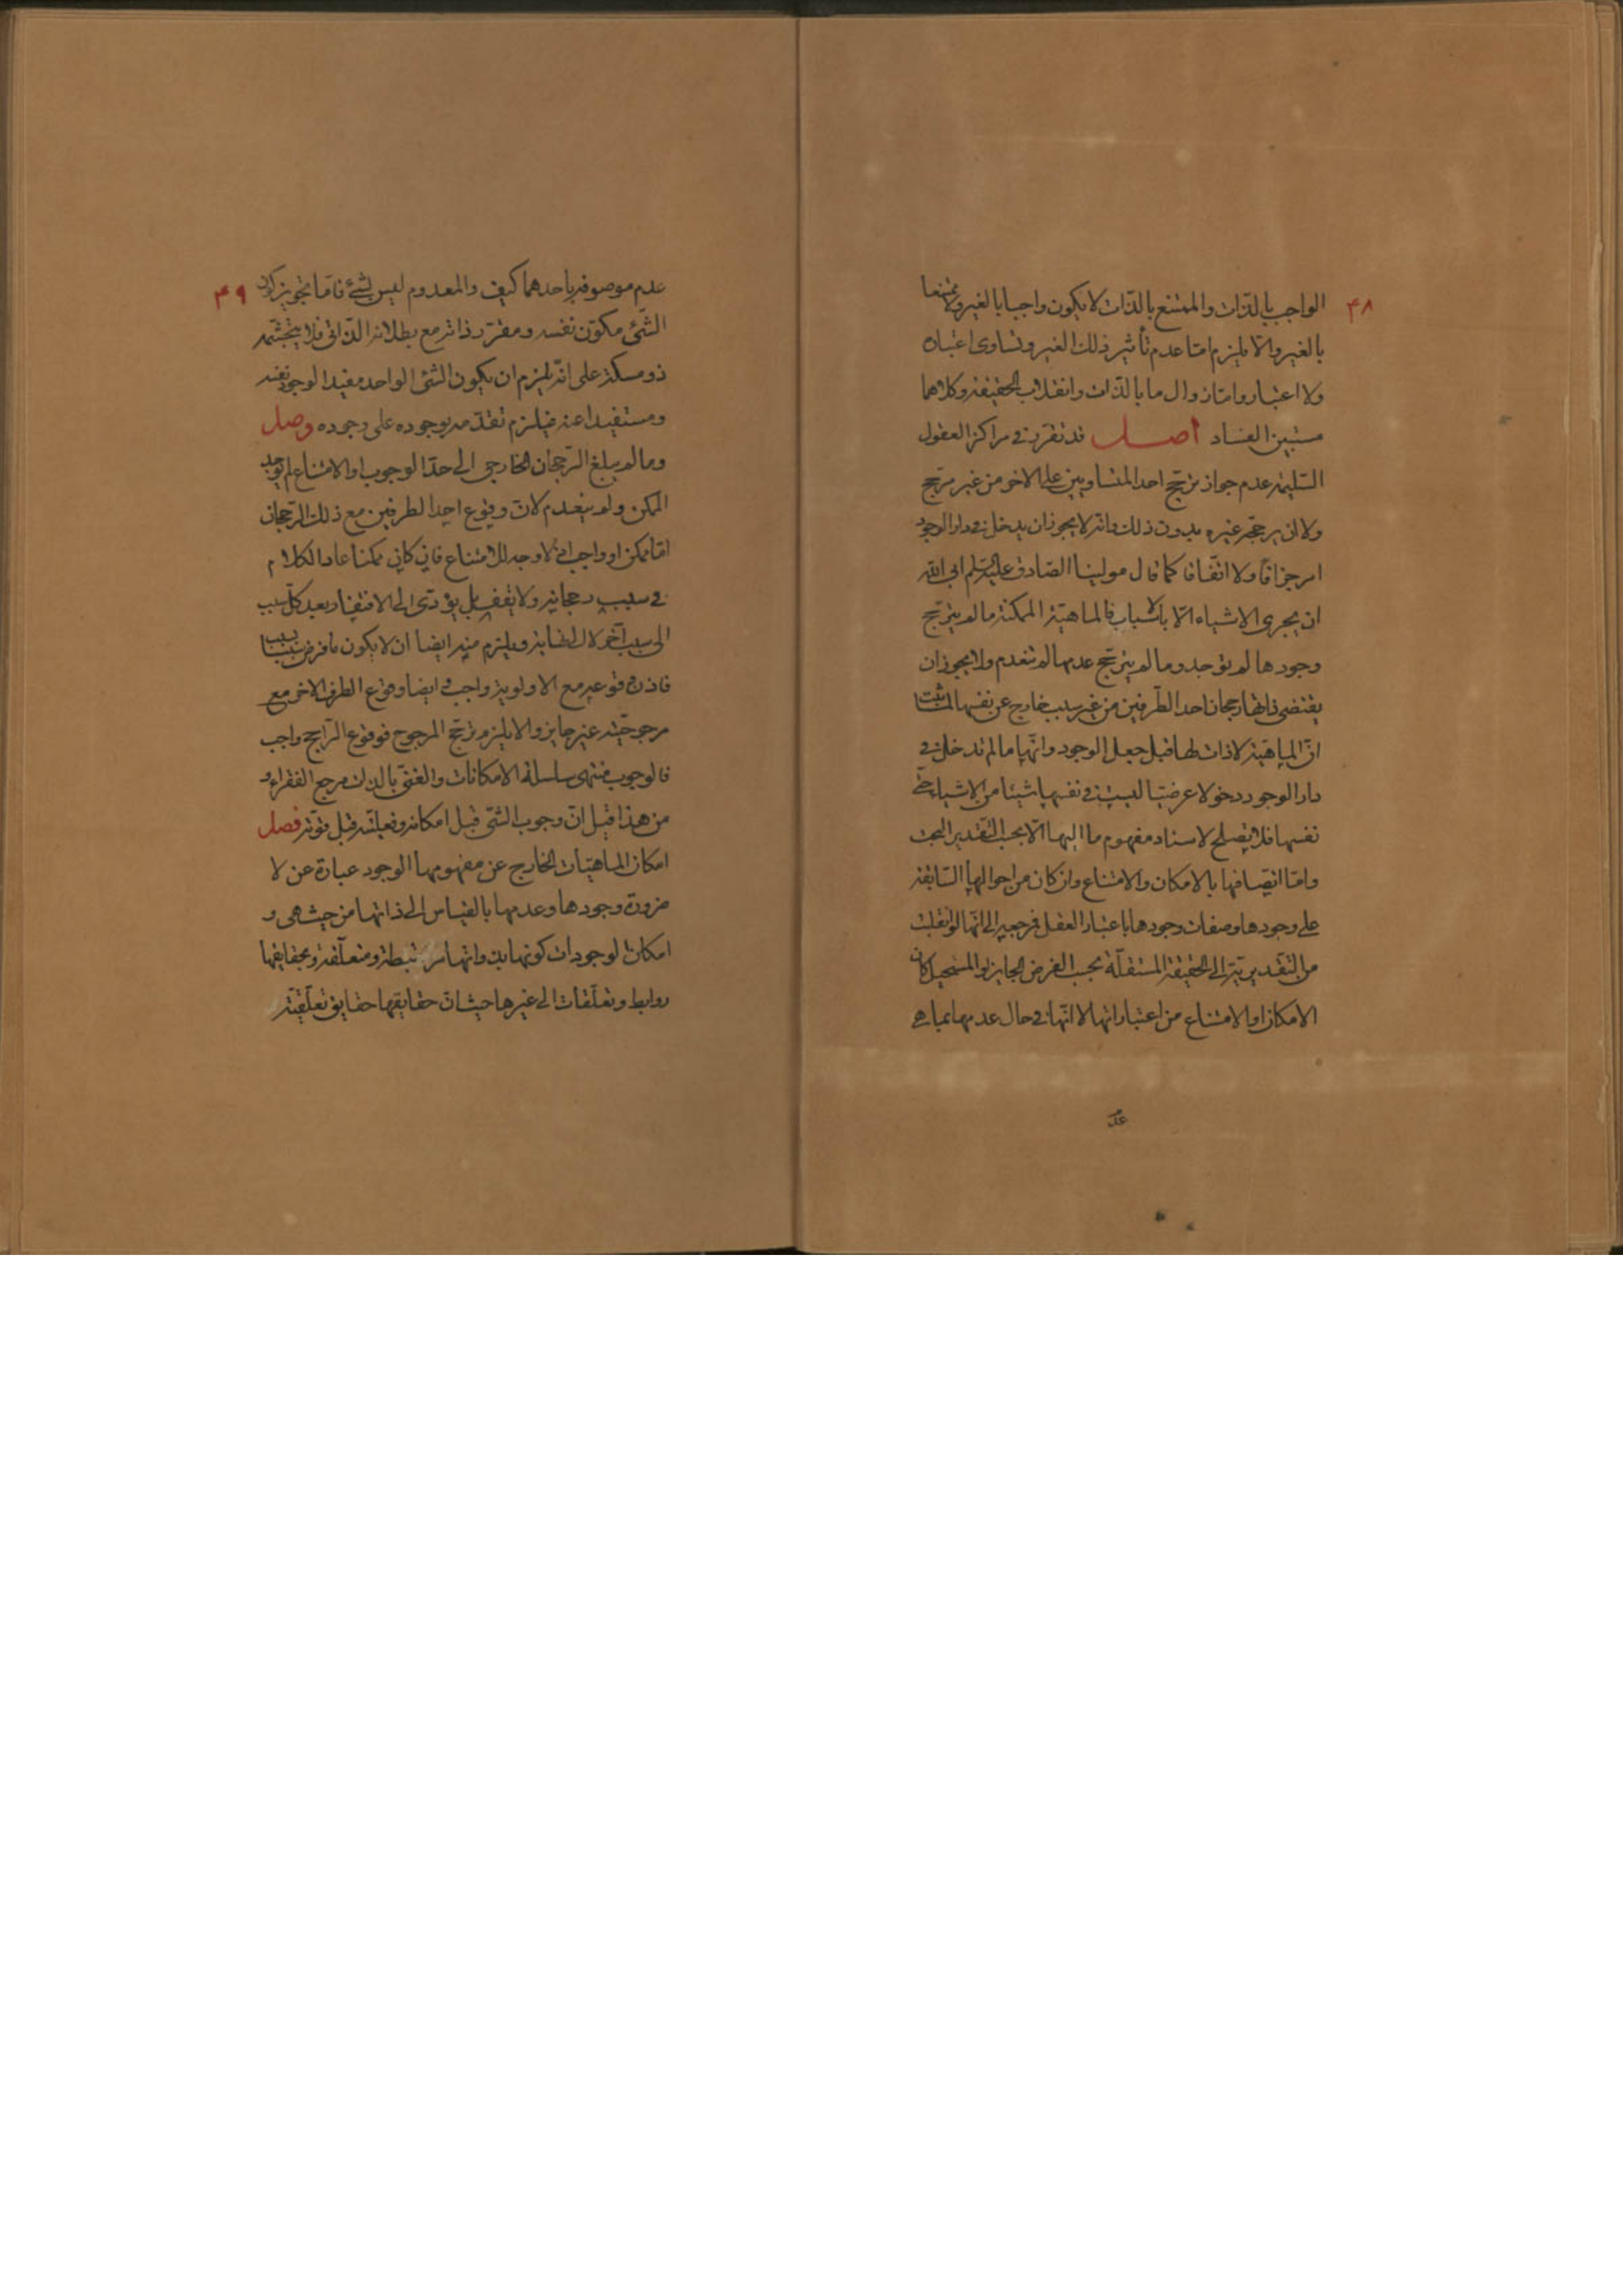 ۴۸
الواجب بالذات والممتنع بالذات لا يكون واجبا بالغير ولا ممتنعا
بالغير والا يلزم اما عدم تأثير ذلك الغير وتساوى اعتباره
ولا اعتباره واما زوال ما بالذات وانقلاب الحقيقة وكلاهما
مستبين الفساد اصل قد تقرر في مراكز العقول
السليمة عدم جواز ترجح احد المتساويين على الاخر من غير مرجح
ولا ان يرجحه غيره بدون ذلك وانه لا يجوز ان يدخل في دار الوجود
امر جزافا ولا اتفاقا كما قال مولينا الصادق عليه السلم ابى الله
ان يجرى الاشياء الا بالاسباب فالماهية الممكنة ما لم يترجح
وجودها لم توجد وما لم يترجح عدمها لم تنعدم ولا يجوز ان
يقتضى ذاتها رجحان احد الطرفين من غير سبب خارج عن نفسها لما ثبت
ان الماهية لا ذات لها قبل جعل الوجود وانها ما لم تدخل في
دار الوجود دخولا عرضيا ليست في نفسها شيئا من الاشياء حتى
نفسها فلا يصلح لاسناد مفهوم ما اليها الا بحسب التقدير البحت
واما اتصافها بالامكان والامتناع وان كان من احوالها السابقة
على وجودها وصفات وجودها باعتبار العقل فرجعه الى انها لو انقلبت
من التقديرية الى الحقيقة المستقلة بحسب الفرض الجايز او المستحيل كان
الامكان او الامتناع من اعتباراتها لا انها في حال عدمها بما هي
عدم
۴۹
عدم موصوفة باحدهما كيف والمعدوم ليس بشئ فاما تجويز كون
الشئ مكون نفسه ومقرر ذاته مع بطلانه الذاتى فلا يتجشمه
ذو مسكة على انه يلزم ان يكون الشئ الواحد مفيد الوجود نفسه
ومستفيدا عنه فيلزم تقدمه بوجوده على وجوده وصل
وما لم يبلغ الرجحان الخارجى الى حد الوجوب او الامتناع لم يوجد
الممكن ولم ينعدم لان وقوع احد الطرفين مع ذلك الرجحان
اما ممكن او واجب اذ لا وجه للامتناع فان كان ممكنا عاد الكلام
في سبب رجحانه ولا يقف بل يؤدى الى الافتقار بعد كل سبب
الى سبب آخر لا الى نهاية ويلزم منه ايضا ان لا يكون ما فرض سببا سببا
فاذن وقوعه مع الاولوية واجب وايضا وقوع الطرف الاخر مع
مرجوحيته غير جايز والا يلزم ترجح المرجوح فوقوع الراجح واجب
فالوجوب منتهى سلسلة الامكانات والغنى بالذات مرجع الفقراء و
من هذا قيل ان وجوب الشئ قبل امكانه وفعليته قبل قوته فصل
امكان الماهيات الخارج عن مفهومها الوجود عبارة عن لا
ضرورة وجودها وعدمها بالقياس الى ذاتها من حيث هى و
امكان الوجودات كونها بذواتها مرتبطة ومتعلقة وبحقايقها
روابط وتعلقات الى غيرها حيث ان حقايقها حقايق تعلقية